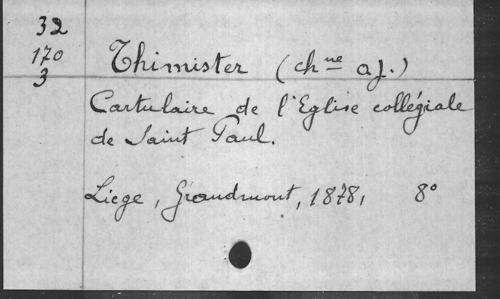 32
170
3
Thimister (chne a.j.)
Cartulaire de l'Eglise collégiale
de Saint Paul.
Liège, Grandmont, 1878, 8°